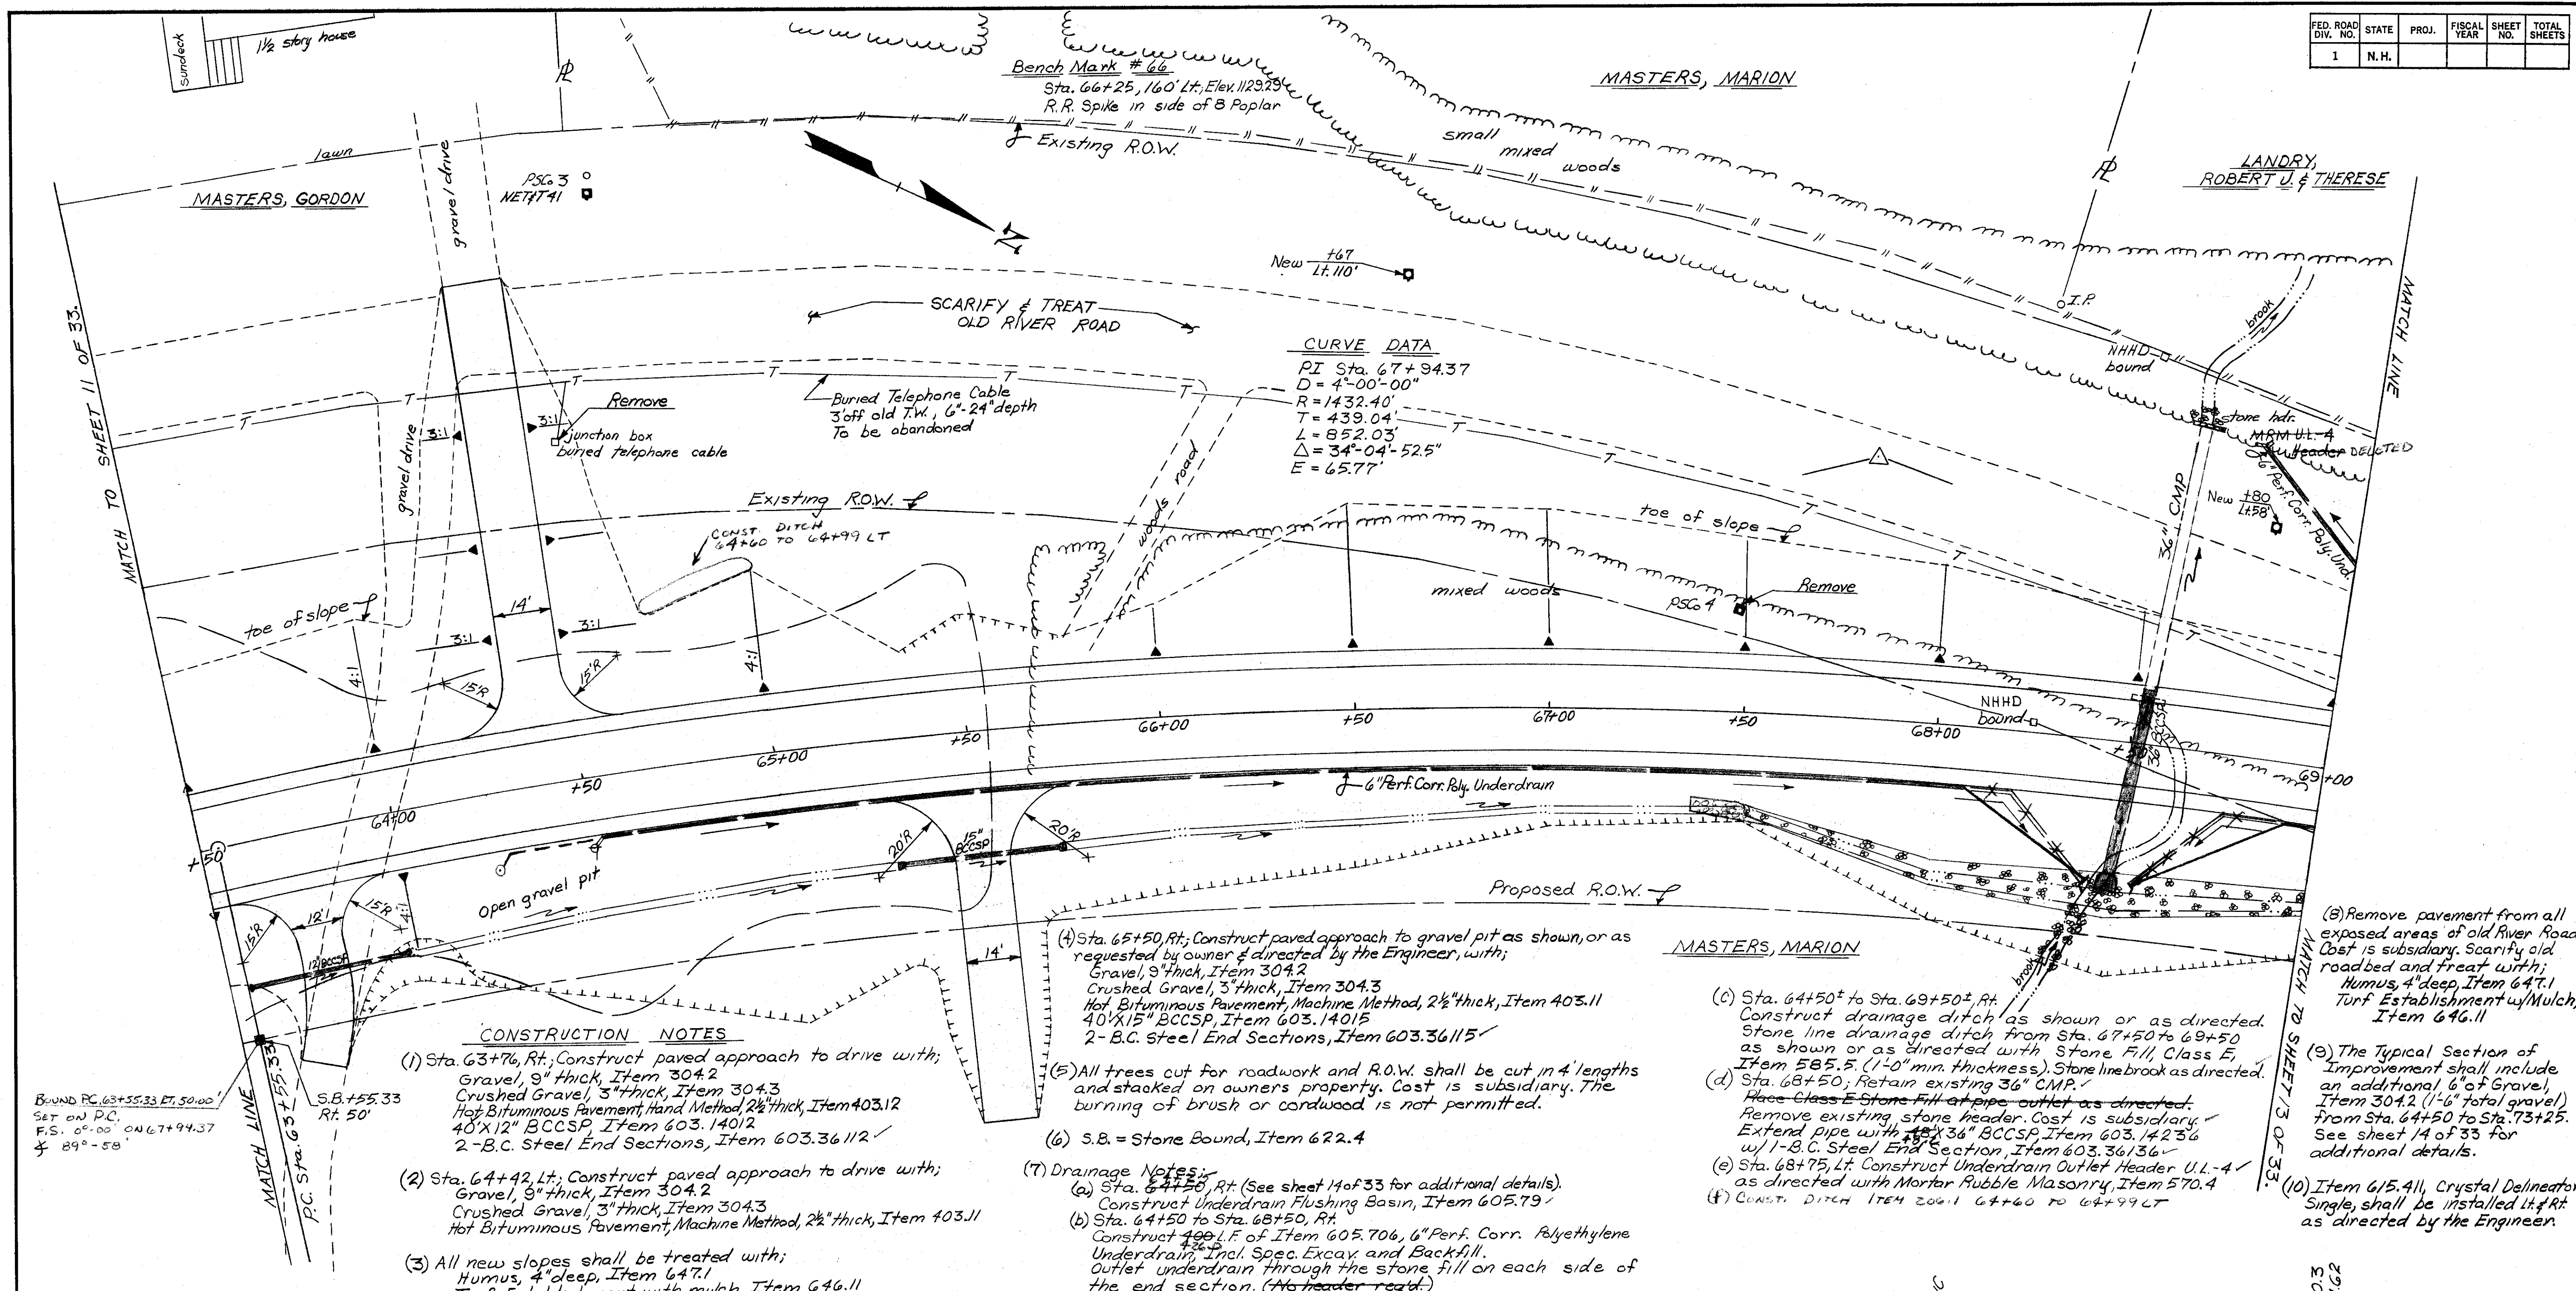 FED. ROAD DIV. NO. STATE PROJ. FISCAL YEAR SHEET NO. TOTAL SHEETS
1 N.H.
sundeck
1½ story house
Bench Mark #66
Sta. 66+25, 160' Lt., Elev. 1129.29
R.R. Spike in side of 8 Poplar
MASTERS, MARION
LANDRY,
ROBERT J. & THERESE
lawn
MASTERS, GORDON
gravel drive
PSCo 3
NET&T 41
Existing R.O.W.
small
mixed
woods
New +67
Lt. 110'
I.P.
brook
MATCH TO SHEET 11 OF 33.
MATCH LINE
SCARIFY & TREAT
OLD RIVER ROAD
CURVE DATA
PI Sta. 67+94.37
D = 4°-00'-00"
R = 1432.40'
T = 439.04'
L = 852.03'
△ = 34°-04'-52.5"
E = 65.77'
Buried Telephone Cable
3' off old T.W., 6"-24" depth
To be abandoned
Remove
junction box
buried telephone cable
3:1
3:1
gravel drive
NHHD
bound
stone hdr.
MRM U.L.-4
Header DELETED
6" Perf. Corr. Poly. Und.
New +80
Lt. 58'
36" CMP
Existing R.O.W.
CONST. DITCH
64+60 TO 64+99 LT
woods road
toe of slope
mixed woods
PSCo 4
Remove
toe of slope
14'
3:1
3:1
4:1
4:1
15'R
15'R
NHHD
bound
36" BCCSP
+50
64+00
+50
65+00
+50
66+00
+50
67+00
+50
68+00
+50
69+00
6" Perf. Corr. Poly. Underdrain
open gravel pit
20'R
15"
BCCSP
20'R
15'R
12'
15'R
4:1
12" BCCSP
14'
Proposed R.O.W.
MASTERS, MARION
brook
MATCH TO SHEET 13 OF 33.
BOUND P.C. 63+55.33 RT. 50.00'
SET ON P.C.
F.S. 0°-00' ON 67+94.37
∡ 89°-58'
S.B. +55.33
Rt. 50'
MATCH LINE
P.C. Sta. 63+55.33
CONSTRUCTION NOTES
(1) Sta. 63+76, Rt.; Construct paved approach to drive with;
Gravel, 9" thick, Item 304.2
Crushed Gravel, 3" thick, Item 304.3
Hot Bituminous Pavement, Hand Method, 2½" thick, Item 403.12
40'X12" BCCSP, Item 603.14012
2-B.C. Steel End Sections, Item 603.36112 ✓
(2) Sta. 64+42, Lt.; Construct paved approach to drive with;
Gravel, 9" thick, Item 304.2
Crushed Gravel, 3" thick, Item 304.3
Hot Bituminous Pavement, Machine Method, 2½" thick, Item 403.11
(3) All new slopes shall be treated with;
Humus, 4" deep, Item 647.1
with mulch, Item 646.11
(4) Sta. 65+50, Rt.; Construct paved approach to gravel pit as shown, or as
requested by owner & directed by the Engineer, with;
Gravel, 9" thick, Item 304.2
Crushed Gravel, 3" thick, Item 304.3
Hot Bituminous Pavement, Machine Method, 2½" thick, Item 403.11
40'X15" BCCSP, Item 603.14015
2-B.C. Steel End Sections, Item 603.36115 ✓
(5) All trees cut for roadwork and R.O.W. shall be cut in 4' lengths
and stacked on owners property. Cost is subsidiary. The
burning of brush or cordwood is not permitted.
(6) S.B. = Stone Bound, Item 622.4
(7) Drainage Notes:
(a) Sta. 64+50, Rt. (See sheet 14 of 33 for additional details).
Construct Underdrain Flushing Basin, Item 605.79 ✓
(b) Sta. 64+50 to Sta. 68+50, Rt.
Construct 400 L.F. of Item 605.706, 6" Perf. Corr. Polyethylene
Underdrain, Incl. Spec. Excav. and Backfill.
Outlet underdrain through the stone fill on each side of
the end section. (No header req'd.)
(c) Sta. 64+50± to Sta. 69+50±, Rt.
Construct drainage ditch as shown or as directed.
Stone line drainage ditch from Sta. 67+50 to 69+50
as shown or as directed with Stone Fill, Class E,
Item 585.5. (1'-0" min. thickness). Stone line brook as directed.
(d) Sta. 68+50; Retain existing 36" CMP. ✓
Place Class E Stone Fill at pipe outlet as directed.
Remove existing stone header. Cost is subsidiary. ✓
Extend pipe with X36" BCCSP, Item 603.14236
w/ 1-B.C. Steel End Section, Item 603.36136 ✓
(e) Sta. 68+75, Lt. Construct Underdrain Outlet Header U.L.-4 ✓
as directed with Mortar Rubble Masonry, Item 570.4
(f) CONST. DITCH ITEM 206.1 64+60 TO 64+99 LT
(8) Remove pavement from all
exposed areas of old River Road
Cost is subsidiary. Scarify old
roadbed and treat with;
Humus, 4" deep, Item 647.1
Turf Establishment w/Mulch,
Item 646.11
(9) The Typical Section of
Improvement shall include
an additional 6" of Gravel,
Item 304.2 (1'-6" total gravel)
from Sta. 64+50 to Sta. 73+25.
See sheet 14 of 33 for
additional details.
(10) Item 615.411, Crystal Delineator
Single, shall be installed Lt. & Rt.
as directed by the Engineer.